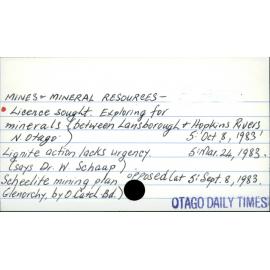 MINES & MINERAL RESOURCES -
• Licence sought. Exploring for
minerals (between Lansborough & Hopkins Rivers
N. Otago) 5: Oct 8, 1983
Lignite action lacks urgency. 5: Mar. 24, 1983.
(says Dr. W Schaap)
Scheelite mining plan opposed (at 5: Sept. 8, 1983.
Glenorchy, by O Catch Bd.)
OTAGO DAILY TIMES